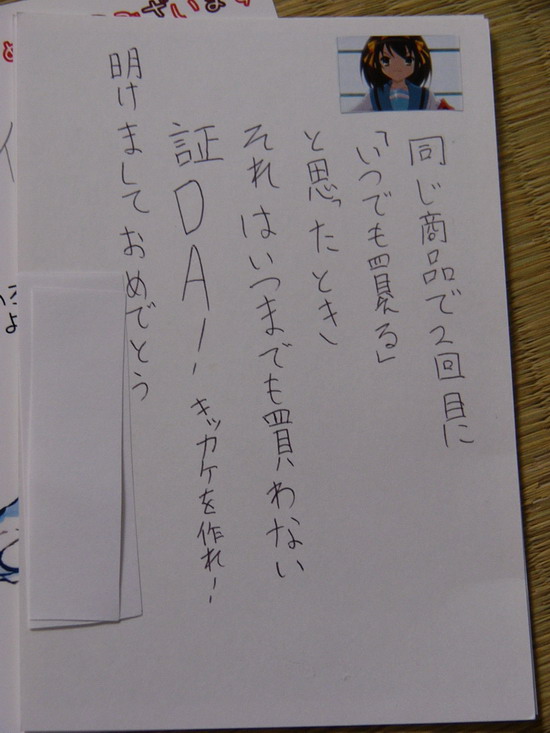 同じ商品で2回目に
「いつでも買える」
と思ったとき、
それはいつまでも買わない
証DA! キッカケを作れ!
明けましておめでとう
ざいます